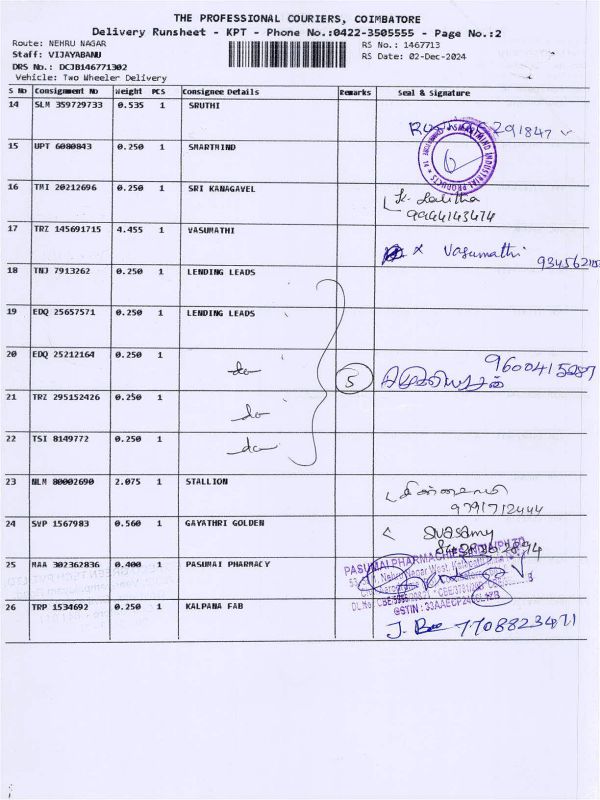 THE PROFESSIONAL COURIERS, COIMBATORE
Delivery Runsheet - KPT - Phone No.:0422-3505555 - Page No.:2
Route: NEHRU NAGAR RS No.: 1467713
Staff: VIJAYABANU RS Date: 02-Dec-2024
DRS No.: DCJB146771302
Vehicle: Two Wheeler Delivery
S No Consignment No Weight PCS Consignee Details Remarks Seal & Signature
14 SLM 359729733 0.535 1 SRUTHI
15 UPT 6080843 0.250 1 SMARTMIND
SMARTMIND INDUSTRIAL PRODUCTS
16 TMI 20212696 0.250 1 SRI KANAGAVEL K. Lalitha
9944143474
17 TRZ 145691715 4.455 1 VASUMATHI x Vasumathi
18 TNJ 7913262 0.250 1 LENDING LEADS
19 EDQ 25657571 0.250 1 LENDING LEADS
20 EDQ 25212164 0.250 1 do 5
21 TRZ 295152426 0.250 1 do
22 TSI 8149772 0.250 1 do
23 NLM 80002690 2.075 1 STALLION
9791712444
24 SVP 1567983 0.560 1 GAYATHRI GOLDEN
25 MAA 302362836 0.400 1 PASUMAI PHARMACY
26 TRP 1534692 0.250 1 KALPANA FAB 7708823471